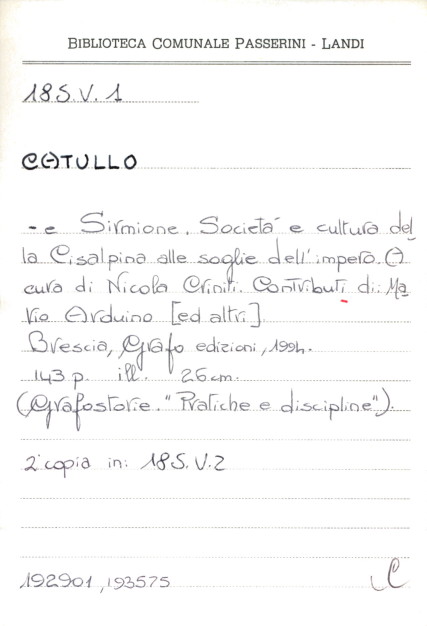 BIBLIOTECA COMUNALE PASSERINI - LANDI
18S.V.1
CATULLO
- e Sirmione. Società e cultura del
la Cisalpina alle soglie dell'impero. A
cura di Nicola Criniti. Contributi di: Ma
rio Arduino [ed altri].
Brescia, Grafo edizioni, 1994.
143 p. ill. 26 cm.
(Grafostorie. "Pratiche e discipline").
2ª copia in: 18S.V.2
192901, 193575